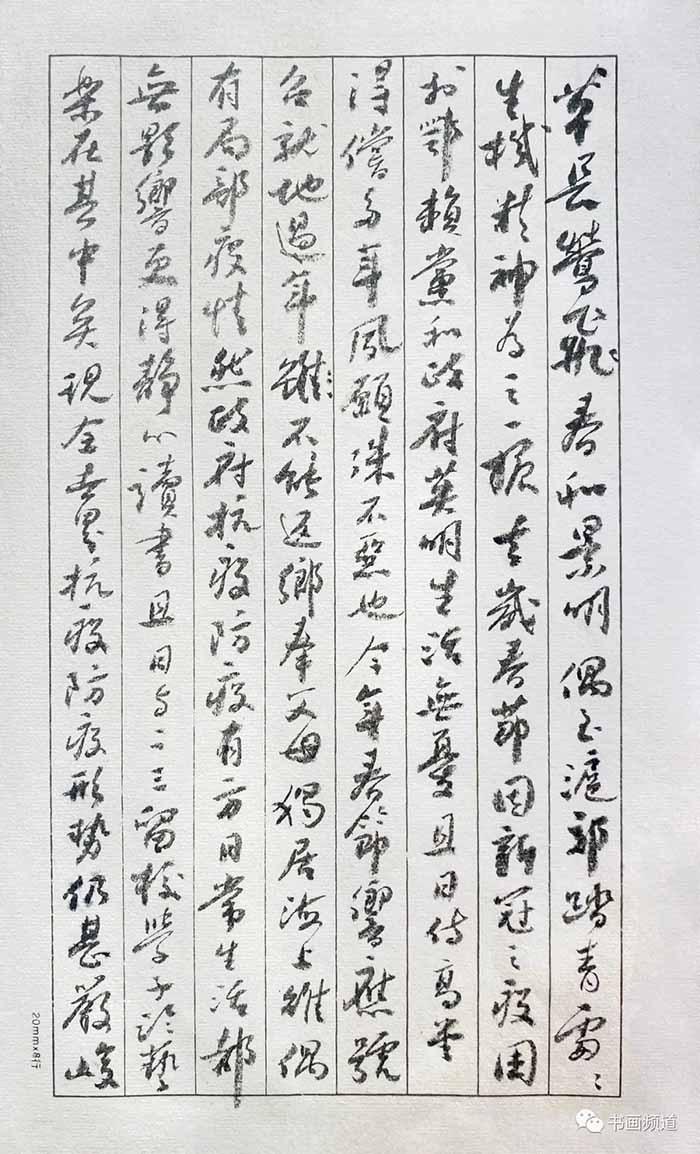 草長鶯飛春和景明偶至滬郊踏青處〻
生機精神為之一振去歲春節因新冠之疫困
於鄂賴黨和政府英明生活無憂且日侍高堂
得償多年夙願殊不惡也今年春節響應號
召就地過年雖不能返鄉奉父母獨居海上雖偶
有局部疫情然政府抗疫防疫有方日常生活都
無影響更得靜心讀書且日與二三留校學子論藝
樂在其中矣現全世界抗疫防疫形勢仍甚嚴峻
20mmx8行
书画频道